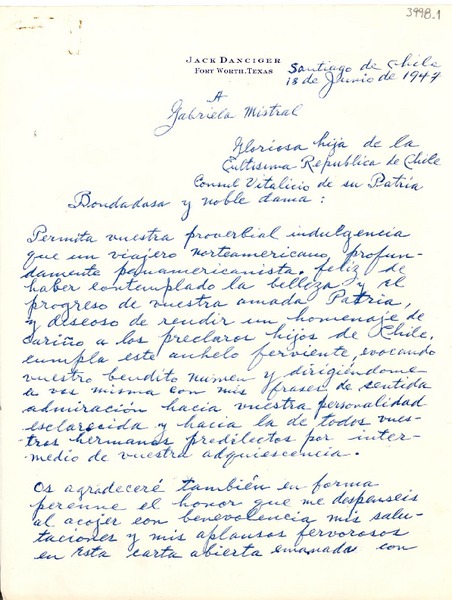 3998.1
JACK DANCIGER
FORT WORTH, TEXAS
Santiago de Chile
18 de Junio de 1944
A
Gabriela Mistral
Gloriosa hija de la
Cultisima Republica de Chile
Consul Vitalicio de su Patria
Bondadosa y noble dama:
Permita vuestra proverbial indulgencia
que un viajero norteamericano, profun-
damente panamericanista, feliz de
haber contemplado la belleza y el
progreso de vuestra amada Patria,
y deseoso de rendir un homenaje de
cariño a los preclaros hijos de Chile,
cumpla este anhelo ferviente, evocando
vuestro bendito numen y dirigiéndome
a vos misma con mis frases de sentida
admiración hacia vuestra personalidad
esclarecida y hacia la de todos vues-
tros hermanos predilectos por inter-
medio de vuestra adquiescencia.
Os agradeceré también en forma
perenne el honor que me despenseis
al acojer con benevolencia mis salu-
taciones y mis aplausos fervorosos
en esta carta abierta emanada con